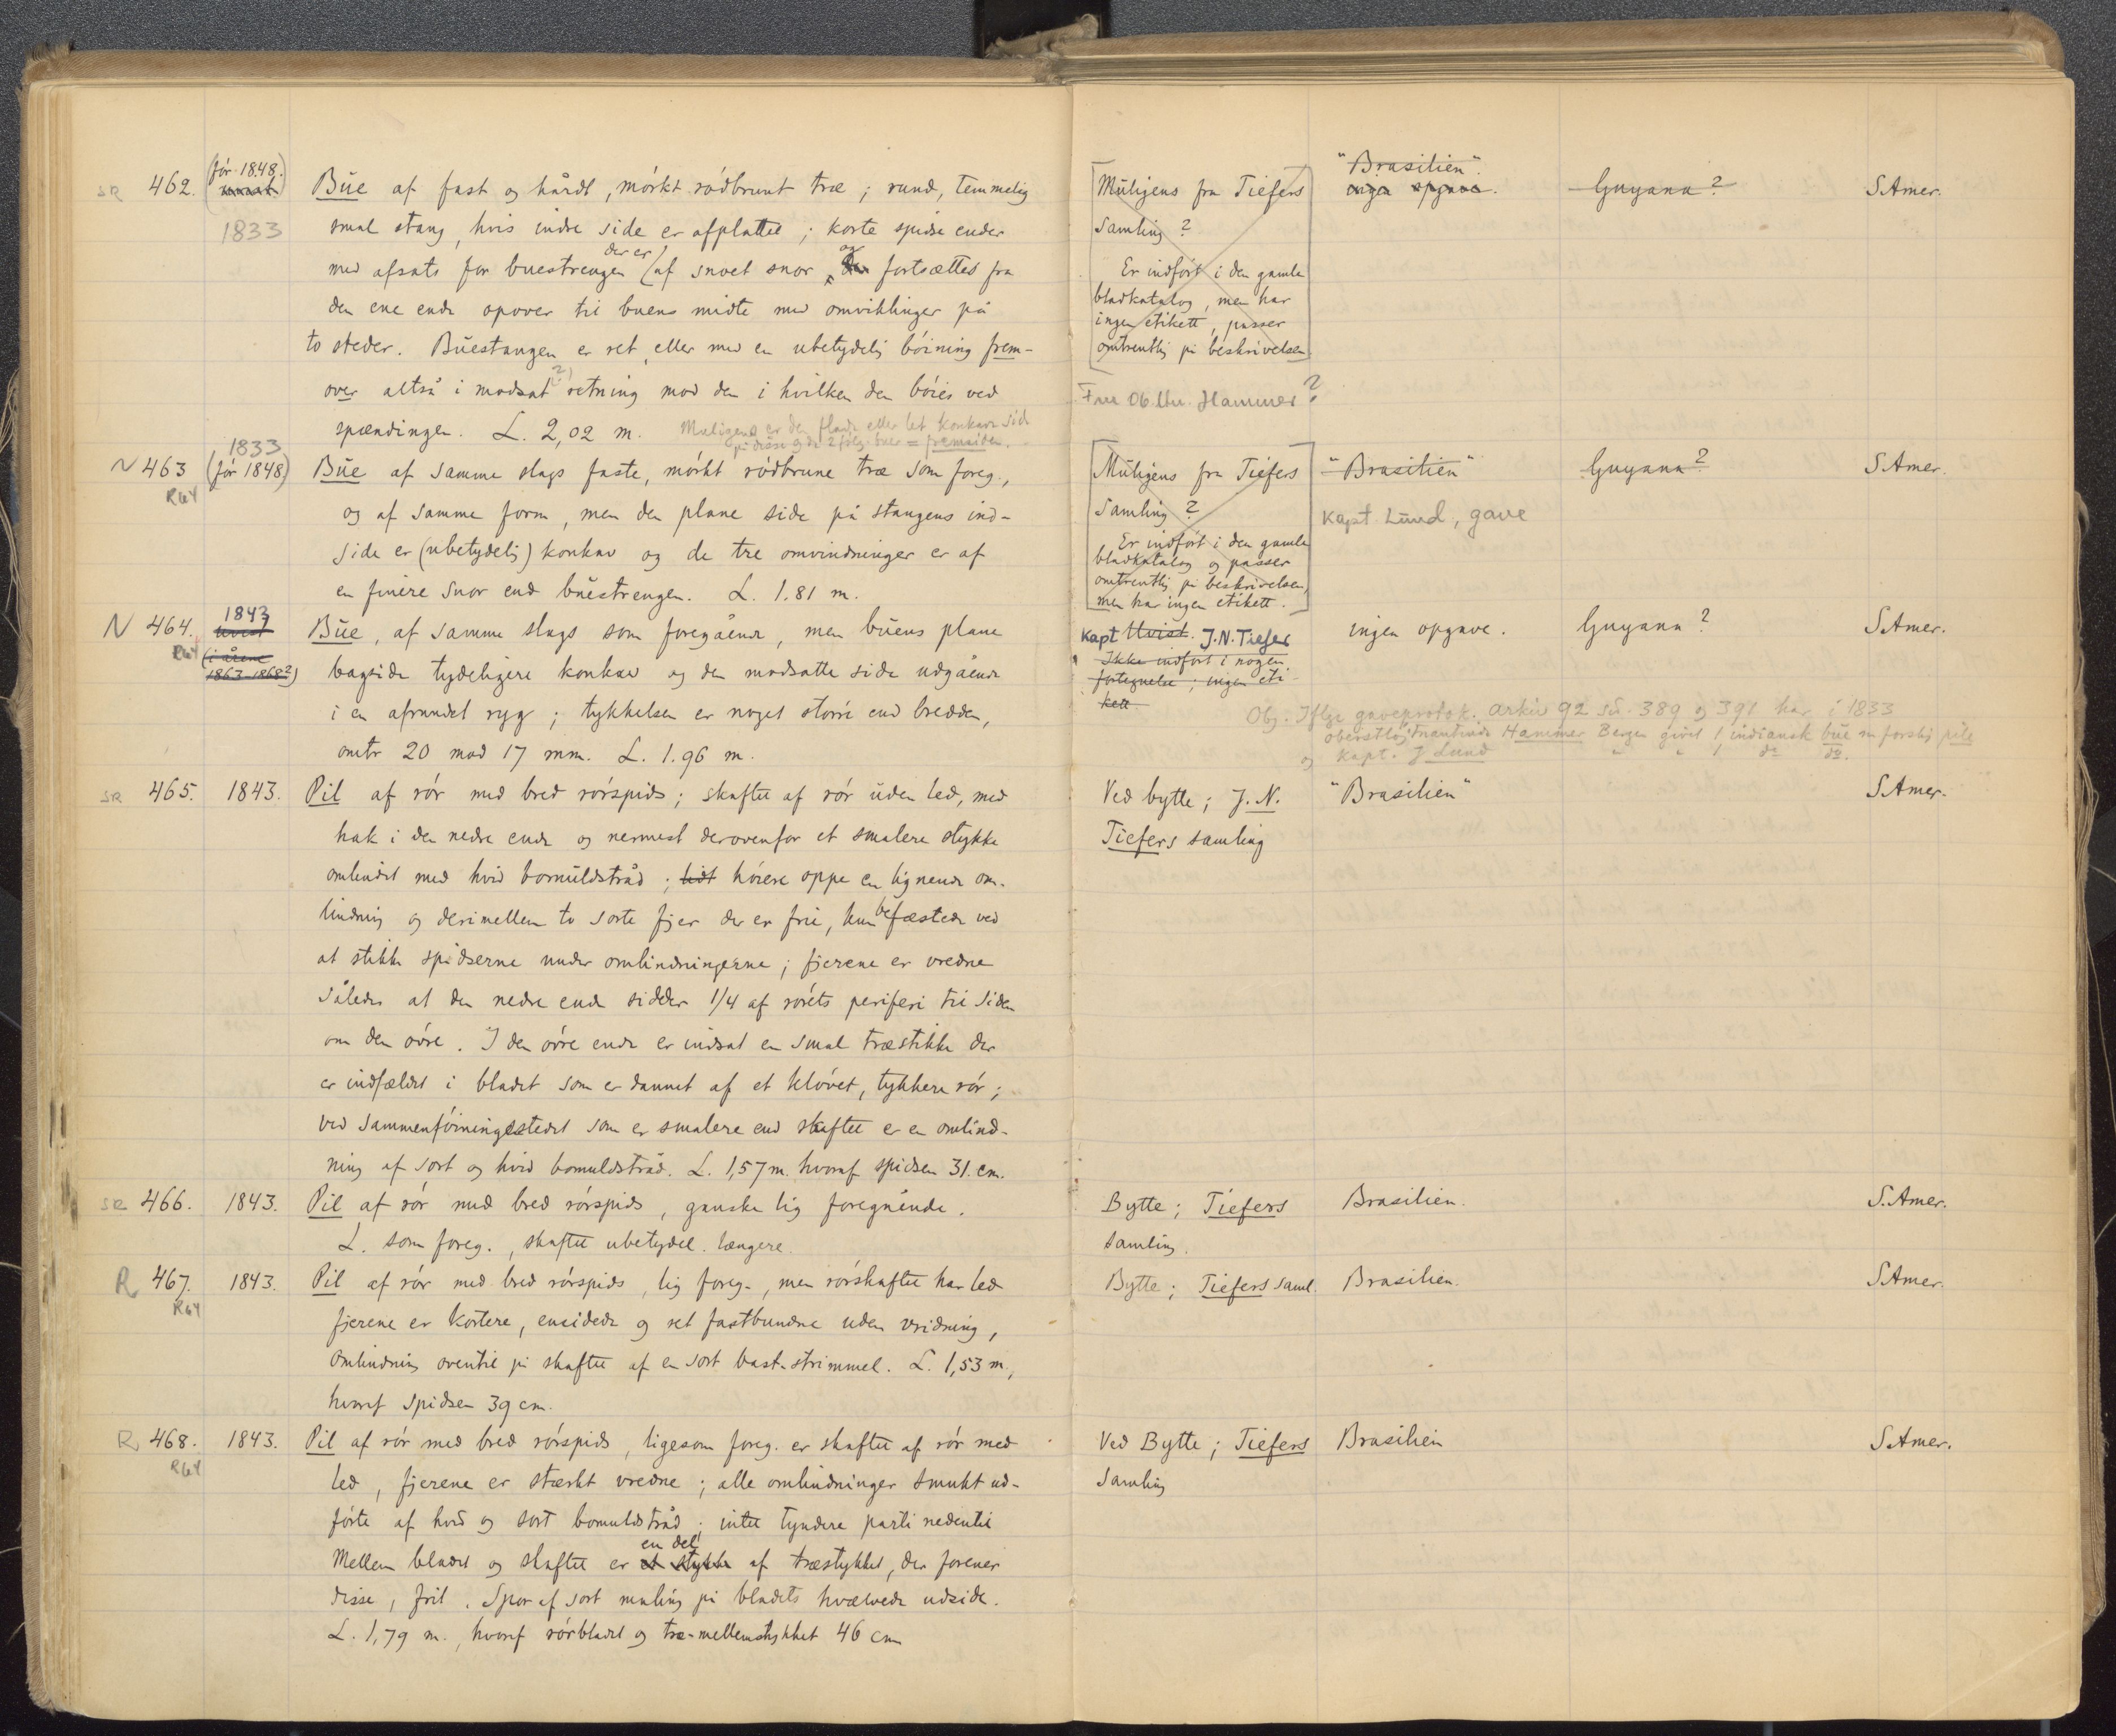 SR 462. (før 1848.) Büe af fast og hårdt, mørkt rødbrunt træ; rund, temmelig
1833 smal stang, hvis indre side er afplattet; korte spidse ender
med afsats for buestrengen der er af snoet snor, og fortsættes fra
den ene ende opover til buens midte med omviklinger på
to steder. Büestangen er ret, eller med en ubetydelig bøining frem-
over altså i modsat (?) retning mod den i hvilken den bøies ved
spændingen. L. 2,02 m. Muligens er den flade eller let konkave side
på disse og de 2 følg. buer = fremsiden.
1833
N 463 (før 1848) Büe af samme slags faste, mørkt rødbrune træ som foreg.,
R64 og af samme form, men den plane side på stangens ind-
side er (ubetydelig) konkav og de tre omvindninger er af
en finere snor end büestrengen. L. 1.81 m.
1843
N 464. uvist Büe, af samme slags som foregående, men büens plane
R64 (i årene 1863-1868?) bagside tydeligere konkav og den modsatte side udgående
i en afrundet ryg; tykkelsen er noget større end bredden,
omtr 20 mod 17 mm. L. 1.96 m.
SR 465. 1843. Pil af rør med bred rørspids; skaftet af rør üden led, med
hak i den nedre ende og nermest derovenfor et smalere stykke
omlindet med hvid bomüldstråd; lidt høiere oppe en lignende om-
lindning og derimellem to sorte fjer der er frie, kun befæstede ved
at stikke spidserne under omlindningerne; fjerene er vredne
således at den nedre ende sidder 1/4 af rørets periferi til siden
om den øvre. I den øvre ende er indsat en smal træstikke der
er indfældet i bladet som er dannet af et kløvet, tykkere rør;
ved sammenføiningsstedet som er smalere end skaftet er en omlind-
ning af sort og hvid bomuldstråd. L. 1,57 m. hvoraf spidsen 31. cm.
SR 466. 1843. Pil af rør med bred rørspids, ganske lig foregående.
L. som foreg., skaftet ubetydel. længere.
R 467. 1843. Pil af rør med bred rørspids, lig foreg., men rørskaftet har led
R64 fjerene er kortere, ensidede og ret fastbundne uden vridning,
omlindning oventil på skaftet af en sort bast-strimmel. L. 1,53 m,
hvoraf spidsen 39 cm.
R 468. 1843. Pil af rør med bred rørspids, ligesom foreg. er skaftet af rør med
R64 led, fjerene er stærkt vredne; alle omlindninger smukt ud-
førte af hvid og sort bomuldstråd; intet tyndere parti nedentil
Mellem bladet og skaftet er et stykke en del af træstykket, der forener
disse, frit. Spor af sort maling på bladets hvælvede udside.
L. 1,79 m., hvoraf rørbladet og træ-mellemstykket 46 cm
Müligens fra Tiefers "Brasilien". ingen opgave. Guyana? S.Amer.
Samling?
Er indført i den gamle
bladkatalog, men har
ingen etikett, passer
omtrentlig på beskrivelsen.
Frue Ob.ltn. Hammer?
Müligens fra Tiefers "Brasilien" Guyana? S.Amer.
Samling?
Kapt. Lund, gave
Er indført i den gamle
bladkatalog og passer
omtrentlig på beskrivelsen,
men har ingen etikett.
Kapt Uvist. J.N. Tiefer ingen opgave. Guyana? S.Amer.
Ikke indført i nogen
fortegnelse; ingen eti-
kett
Obs: Iflge gaveprotok. arkiv 92 s. 389 og 391 har i 1833
oberstløjtnantinde Hammer Bergen givet 1 indiansk büe m forskj pile
og Kapt. J Lund " " 1 do do.
Ved bytte; J.N. "Brasilien" S.Amer.
Tiefers samling
Bytte; Tiefers Brasilien. S.Amer.
samling.
Bytte; Tiefers saml. Brasilien. S.Amer.
Ved Bytte; Tiefers Brasilien S.Amer.
samling